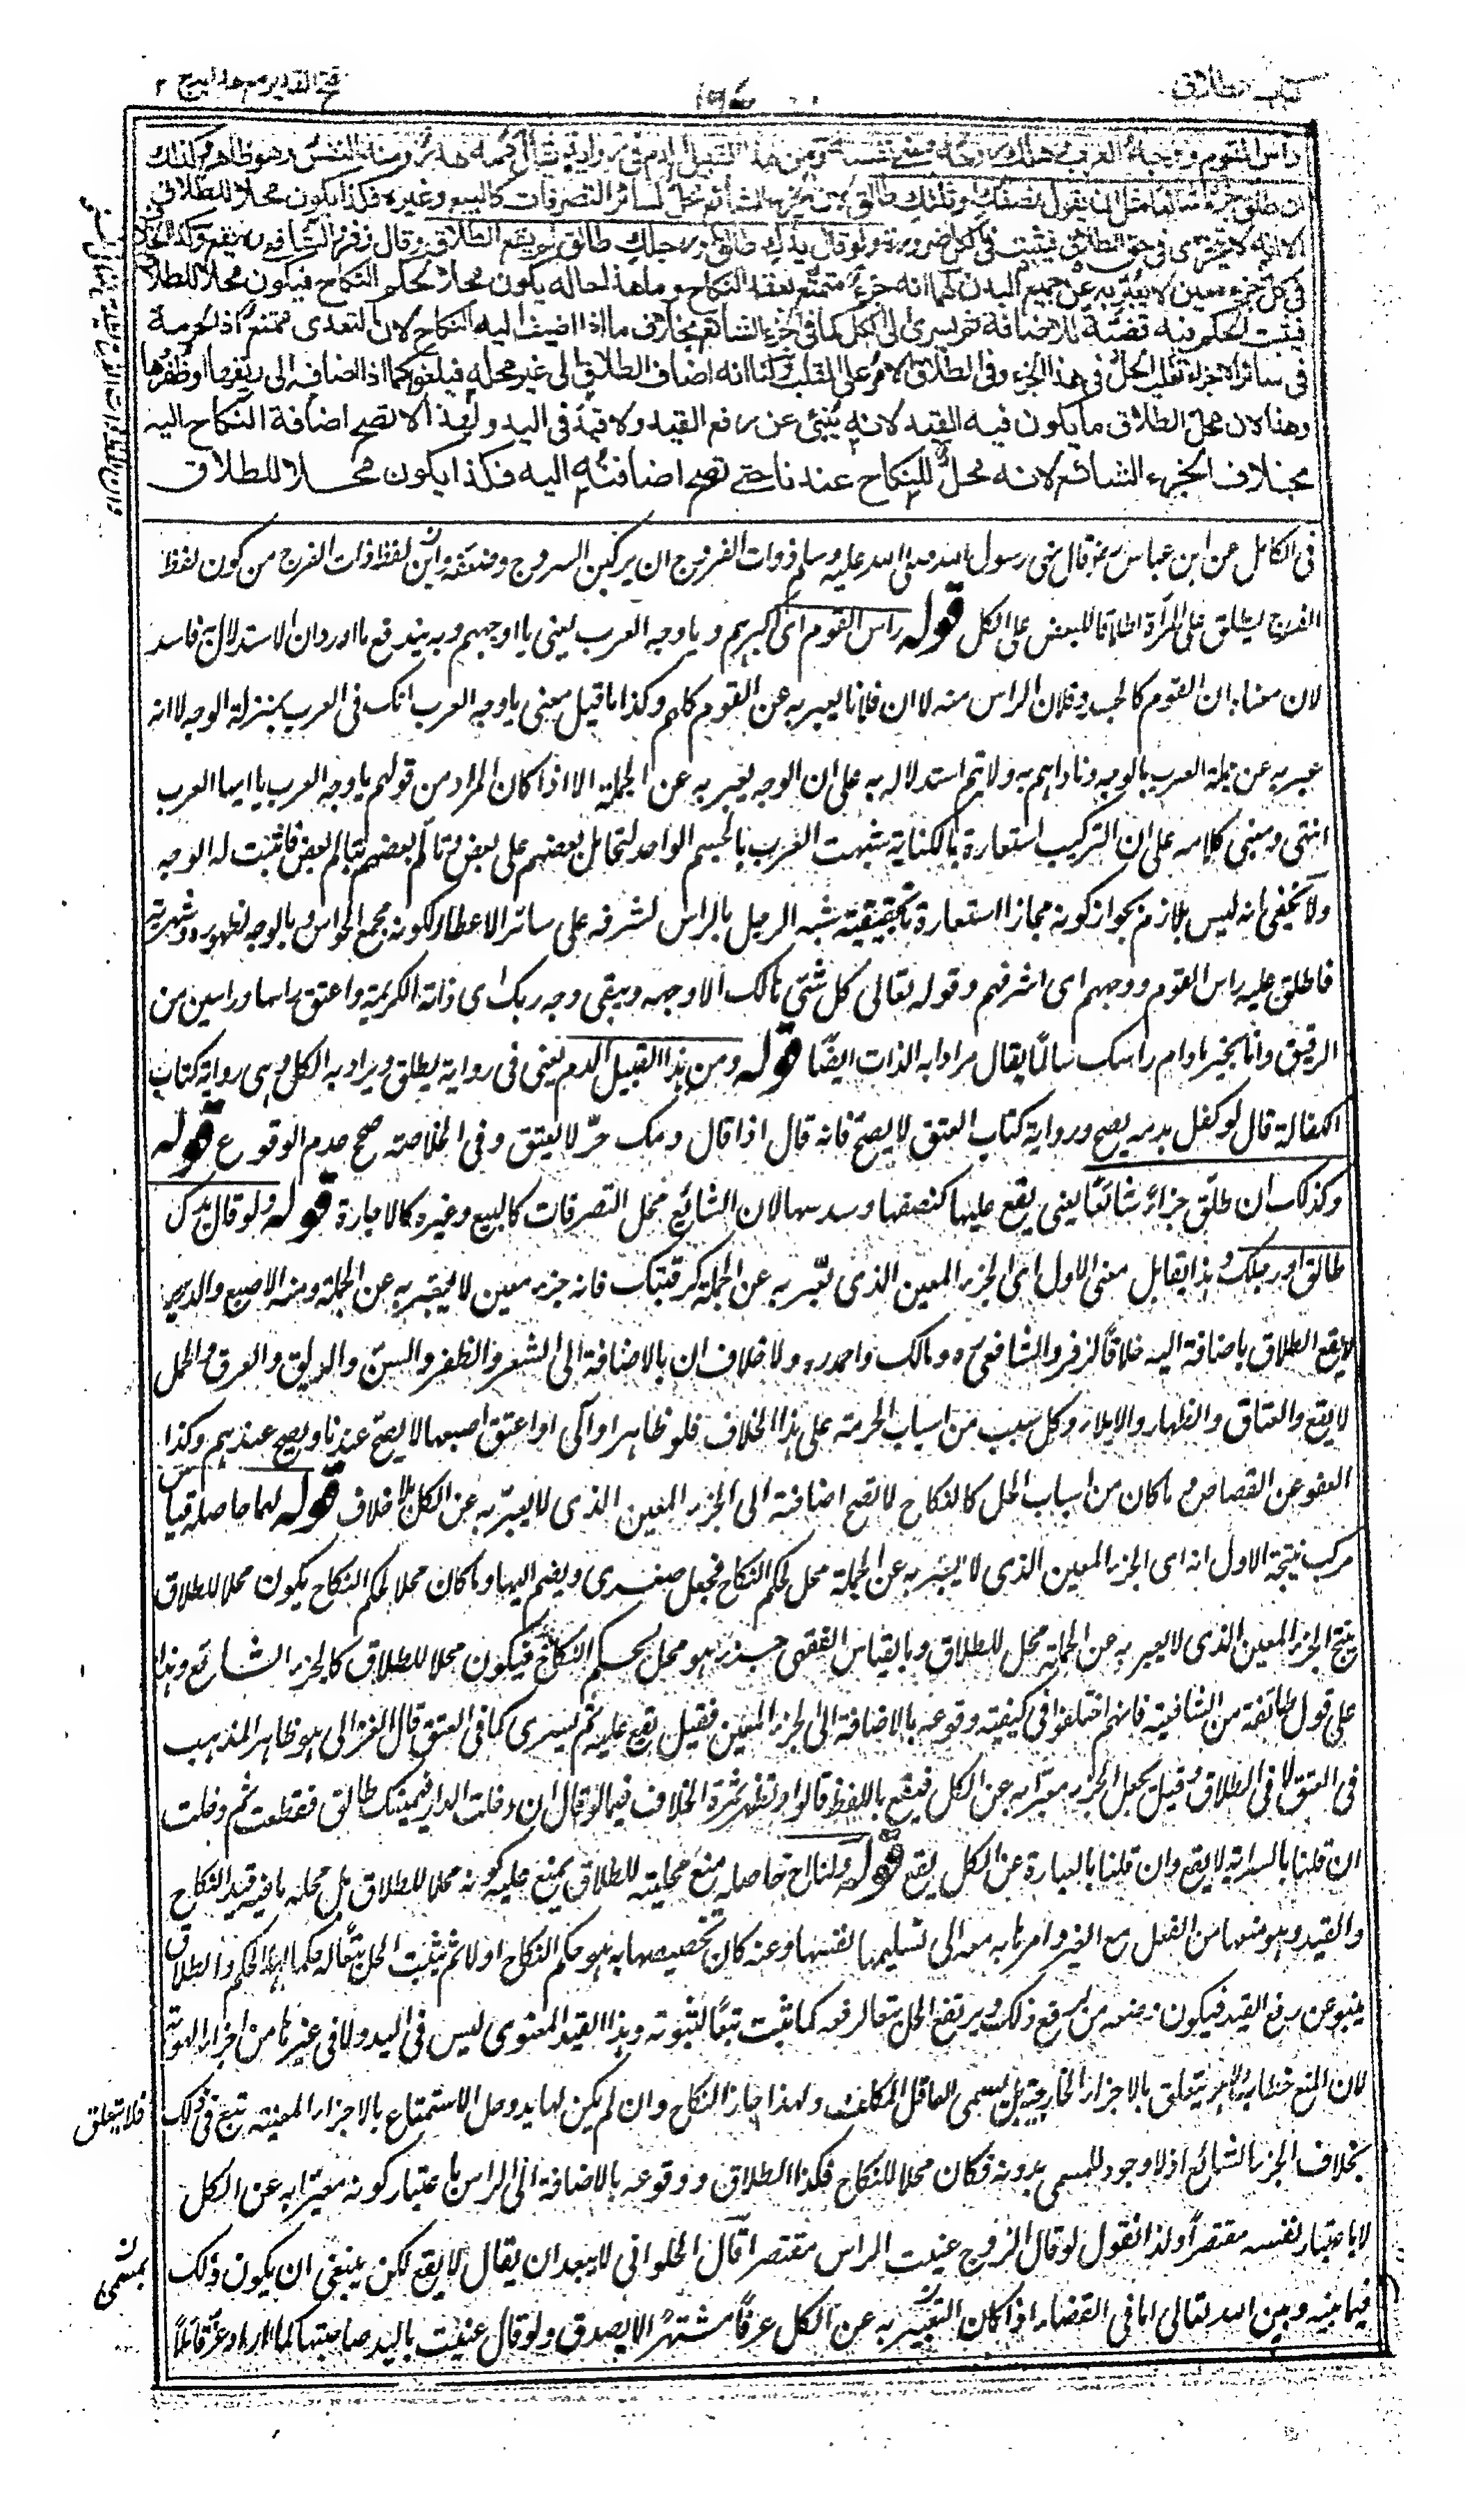 كتاب الطلاق
١٩٤
فتح القدير مع هدايه ج ٢
راس القوم و وجه العرب وهلك روحه بمعنى نفسه ومن هذا القبيل الدم في رواية يقال دمه هدر ومنه النفس وهو ظاهر وكذلك
ان طلق جزءا شائعا مثل ان يقول نصفك او ثلثك طالق لان الجزء الشائع محل لسائر التصرفات كالبيع وغيره فكذا يكون محلا للطلاق
الا انه لا يتجزى فى حق الطلاق فيثبت فى الكل ضرورة ولو قال يدك طالق او رجلك طالق لم يقع الطلاق وقال زفر والشافعى يقع وكذا الخلاف
فى كل جزء معين لا يعبر به عن جميع البدن لهما انه جزء متمتع بعقد النكاح وما هذا حاله يكون محلا لحكم النكاح فيكون محلا للطلاق
فيثبت الحكم فيه قضية للاضافة ثم يسرى الى الكل كما فى الجزء الشائع بخلاف ما اذا اضيف اليه النكاح لان التعدى ممتنع اذ الحرمة
فى سائر الاجزاء تغلب الحل فى هذا الجزء وفى الطلاق الامر على القلب ولنا انه اضاف الطلاق الى غير محله فيلغو كما اذا اضافه الى ريقها او ظفرها
وهذا لان محل الطلاق ما يكون فيه القيد لانه ينبئ عن رفع القيد ولا قيد فى اليد ولهذا لا تصح اضافة النكاح اليه
بخلاف الجزء الشائع لانه محل للنكاح عندنا حتى تصح اضافته اليه فكذا يكون محلا للطلاق
فى الكامل عن ابن عباس رض قال نهى رسول الله صلى الله عليه وسلم ذوات الفروج ان يركبن السروج وضعفه واين لفظ ذات الفرج من كون لفظ
الفرج يطلق على المرأة اطلاقا للبعض على الكل قوله راس القوم اى اكبرهم و يا وجه العرب يعنى يا اوجههم وبه يندفع ما اورد ان الاستدلال به فاسد
لان معناه ان القوم كالجسد وفلان الراس منه لا ان فلانا يعبر به عن القوم كلهم وكذا ما قيل معنى يا وجه العرب انك فى العرب بمنزلة الوجه لا انه
عبر به عن جملة العرب بالوجه وناداهم به ولا يتم استدلاله به على ان الوجه يعبر به عن الجملة الا اذا كان المراد من قولهم يا وجه العرب يا ايها العرب
انتهى ومبنى كلامه على ان التركيب استعارة بالكناية شبهت العرب بالجسم الواحد لتحامل بعضهم على بعض وتألم بعضهم بتألم البعض فاثبت له الوجه
ولا يخفى انه ليس بلازم بجواز كونه مجازا استعارة تحقيقية شبه الرجل بالراس لشرفه على سائر الاعضاء ولكونه مجمع الحواس وبالوجه لظهوره وشهرته
فاطلق عليه راس القوم ووجههم اى اشرفهم وقوله تعالى كل شئ هالك الا وجهه ويبقى وجه ربك اى ذاته الكريمة واعتق راسا وراسين من
الرقيق وانا بخير ما دام راسك سالما يقال مرادا به الذات ايضا قوله ومن هذا القبيل الدم يعنى فى رواية يطلق ويراد به الكل وهى رواية كتاب
الكفالة قال لو كفل بدمه يصح ورواية كتاب العتق لا يصح فانه قال اذا قال دمك حر لا يعتق وفى الخلاصة صحح عدم الوقوع قوله
وكذلك ان طلق جزاء شائعا يعنى يقع عليها كنصفها وسدسها لان الشائع محل التصرفات كالبيع وغيره كالاجارة قوله ولو قال يدك
طالق او رجلك هذا يقابل معنى الاول اى الجزء المعين الذى يعبر به عن الجملة كرقبتك فانه جزء معين لا يعبر به عن الجملة ومنه الاصبع والدبر
لا يقع الطلاق باضافته اليه خلافا لزفر والشافعى ومالك واحمد ولا خلاف ان بالاضافة الى الشعر والظفر والسن والريق والعرق والحمل
لا يقع والعتاق والظهار والايلاء وكل سبب من اسباب الحرمة على هذا الخلاف فلو ظاهر او آلى او اعتق اصبعها لا يصح عندنا ويصح عندهم وكذا
العفو عن القصاص وما كان من اسباب الحل كالنكاح لا تصح اضافته الى الجزء المعين الذى لا يعبر به عن الكل بلا خلاف قوله لهما حاصله قياس
مركب نتيجة الاول انه اى الجزء المعين الذى لا يعبر به عن الجملة محل لحكم النكاح فيجعل صغرى ويضم اليها وما كان محلا لحكم النكاح يكون محلا للطلاق
ينتج الجزء المعين الذى لا يعبر به عن الجملة محل للطلاق وبالقياس الفقهى جزء هو محل لحكم النكاح فيكون محلا للطلاق كالجزء الشائع وهذا
على قول طائفة من الشافعية فانهم اختلفوا فى كيفية وقوعه بالاضافة الى الجزء المعين فقيل يقع عليه ثم يسرى كما فى العتق قال الغزالى هو ظاهر المذهب
فى العتق لا فى الطلاق وقيل يجعل الجزء معبرا به عن الكل فيقع باللفظ قالوا وتظهر ثمرة الخلاف فيما لو قال ان دخلت الدار فيمينك طالق فقطعت ثم دخلت
ان قلنا بالسراية لا يقع وان قلنا بالعبارة عن الكل يقع قوله ولنا الخ حاصله منع محليته للطلاق بمنع علية كونه محلا للطلاق بل محله ما فيه قيد النكاح
والقيد وهو منعها من الفعل مع الغير وامرها به معه الى تسليمها نفسها وعنه كان تخصيصها به هو حكم النكاح اولا ثم يثبت الحل تبعا له حكما لهذا الحكم والطلاق
ينبو عن رفع القيد فيكون وضعه من رفع ذلك ويرتفع الحل تبعا لرفعه كما ثبت تبعا لثبوته وهذا القيد المعنوى ليس فى اليد ولا فى غيرها من اجزاء الهوية
لان المنع خطاب والامر يتعلق بالاجزاء الخارجية بل بمسمى العاقل المكلف ولهذا جاز النكاح وان لم يكن لها يد وحل الاستمتاع بالاجزاء المعينة تبع فى ذلك
فلا يتعلق
بخلاف الجزء الشائع اذ لا وجود للمسمى بدونه فكان محلا للنكاح فكذا الطلاق ووقوعه بالاضافة الى الراس باعتبار كونه معبرا به عن الكل
لا باعتبار نفسه مقتصرا ولذا نقول لو قال الزوج عنيت الراس مقتصرا قال الحلوانى لا يبعد ان يقال لا يقع لكن ينبغى ان يكون ذلك
فيما بينه وبين الله تعالى اما فى القضاء اذا كان التعبير به عن الكل عرفا مشتهرا لا يصدق ولو قال عنيت باليد صاحبتها كما اراد عز قائلا